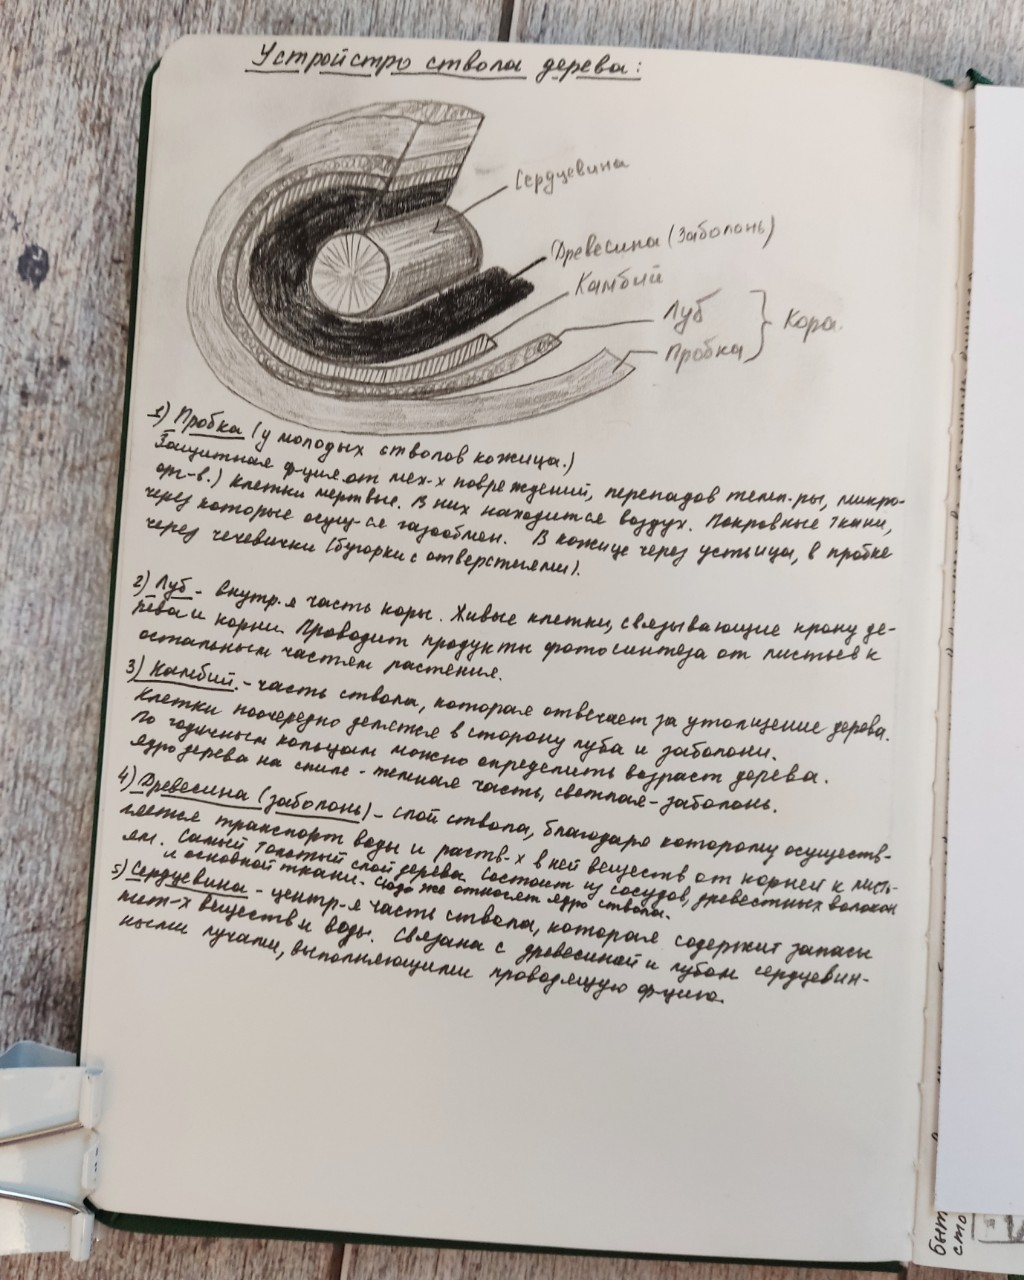 Устройстро ствола дерева:
Сердцевина
Древесина (Заболонь)
Камбий
Луб
Кора.
Пробка
1) Пробка (у молодых стволов кожица.)
Защитная ф-ция от мех-х повреждений, перепадов темп-ры, микро-
орг-в.) Клетки мертвые. В них находится воздух. Покровные ткани,
через которые осущ-ся газообмен. В кожице через устьица, в пробке
через чечевички (бугорки с отверстиями).
2) Луб - внутр.я часть коры. Живые клетки, связывающие крону де-
рева и корни. Проводит продукты фотосинтеза от листьев к
остальным частям растения.
3) Камбий. - часть ствола, которая отвечает за утолщение дерева.
Клетки поочередно делятся в сторону луба и заболони.
По годичным кольцам можно определить возраст дерева.
Ядро дерева на спиле - темная часть, светлая - заболонь.
4) Древесина (заболонь) - слой ствола, благодаря которому осуществ-
ляется транспорт воды и раств-х в ней веществ от корней к листь-
ям. Самый толстый слой дерева. Состоит из сосудов, древестных волокон
и основной ткани. Сюда же относят ядро ствола.
5) Сердцевина - центр-я часть ствола, которая содержит запасы
пит-х веществ и воды. Связана с древесиной и лубом сердцевин-
ными лучами, выполняющими проводящую ф-цию.
быт
сто